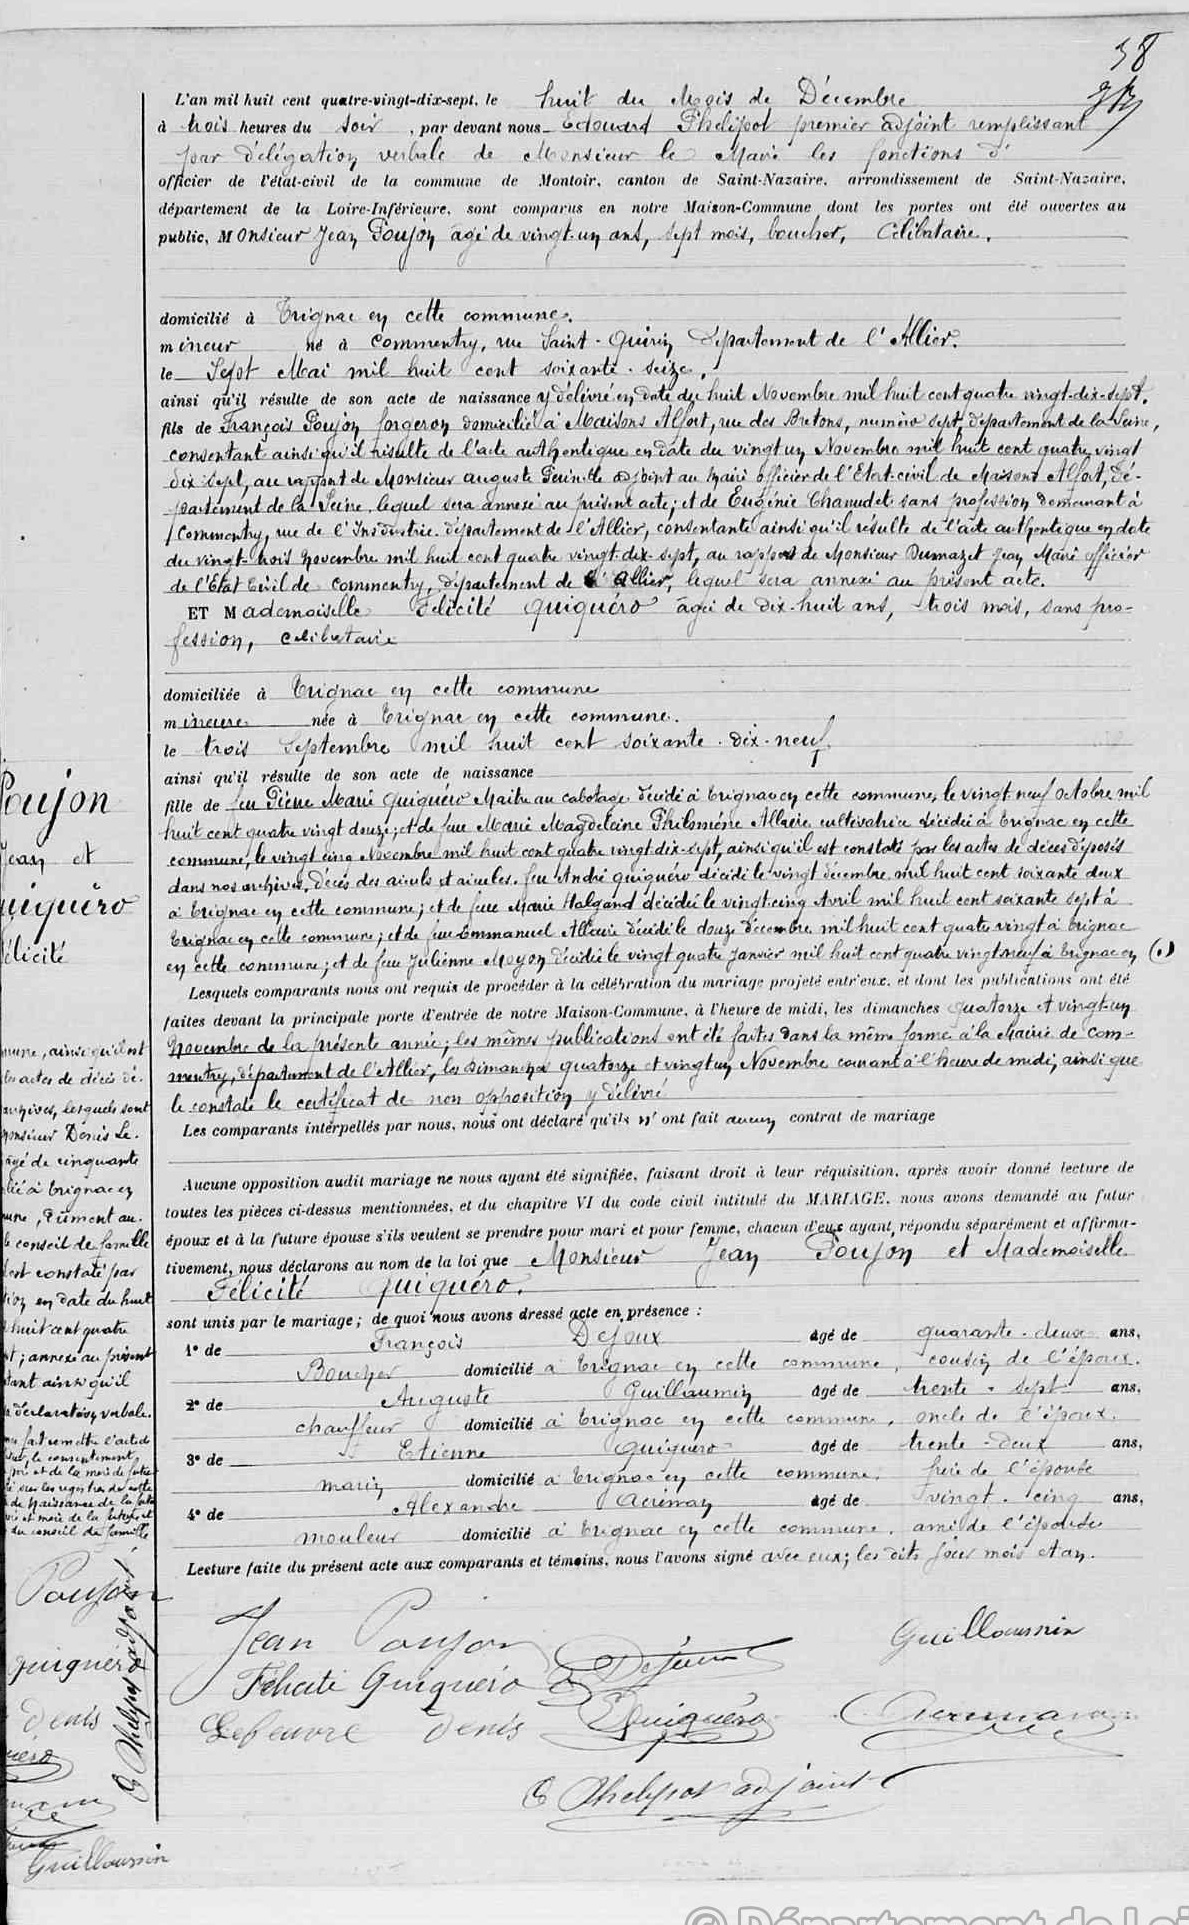 58
L'an mil huit cent quatre-vingt-dix-sept, le huit du Mois de Décembre
à trois heures du soir, par devant nous Edouard Phelipot premier adjoint remplissant
par délégation verbale de Monsieur le Maire les fonctions d'
officier de l'état-civil de la commune de Montoir, canton de Saint-Nazaire, arrondissement de Saint-Nazaire,
département de la Loire-Inférieure, sont comparus en notre Maison-Commune dont les portes ont été ouvertes au
public, Monsieur Jean Poujon âgé de vingt-un ans, sept mois, boucher, Célibataire.
domicilié à Trignac en cette commune.
mineur né à Commentry, rue Saint-Quirin Département de l'Allier.
le Sept Mai mil huit cent soixante-seize.
ainsi qu'il résulte de son acte de naissance y délivré en date du huit Novembre mil huit cent quatre vingt-dix-sept.
fils de François Poujon forgeron domicilié à Maisons Alfort, rue des Bretons, numéro sept, département de la Seine,
consentant ainsi qu'il résulte de l'acte authentique en date du vingt un Novembre mil huit cent quatre vingt
dix sept, au rapport de Monsieur Auguste adjoint au Maire officier de l'Etat-civil de Maisons Alfort, Dé-
partement de la Seine, lequel sera annexé au présent acte; et de Eugénie Chanudet sans profession demeurant à
Commentry, rue de l'Industrie département de l'Allier, consentante ainsi qu'il résulte de l'acte authentique en date
du vingt-trois novembre mil huit cent quatre vingt-dix-sept, au rapport de Monsieur Dumazet Jean Maire officier
de l'Etat Civil de Commentry, département de l'Allier, lequel sera annexé au présent acte.
ET Mademoiselle Félicité Guiguéro âgée de dix-huit ans, trois mois, sans pro-
fession, célibataire
domiciliée à Trignac en cette commune
mineure née à Trignac en cette commune.
le trois Septembre mil huit cent soixante-dix-neuf
ainsi qu'il résulte de son acte de naissance
fille de feu Pierre Marie Guiguéro Maitre au cabotage décédé à Trignac en cette commune, le vingt neuf octobre mil
huit cent quatre vingt douze; et de feue Marie Magdeleine Philomène Allaire cultivatrice décédée à Trignac en cette
commune, le vingt cinq Novembre mil huit cent quatre vingt dix-sept, ainsi qu'il est constaté par les actes de décès déposés
dans nos archives, décès des aieuls et aieules. feu André Guiguéro décédé le vingt décembre mil huit cent soixante deux
à Trignac en cette commune; et de feue Marie Halgand décédée le vingt-cinq Avril mil huit cent soixante sept à
Trignac en cette commune; et de feu Emmanuel Allaire décédé le douze décembre mil huit cent quatre vingt à Trignac
en cette commune; et de feue Julienne Moyon décédée le vingt quatre Janvier mil huit cent quatre vingt neuf à Trignac en (1)
Lesquels comparants nous ont requis de procéder à la célébration du mariage projeté entr'eux, et dont les publications ont été
faites devant la principale porte d'entrée de notre Maison-Commune, à l'heure de midi, les dimanches quatorze et vingt-un
Novembre de la présente année; les mêmes publications ont été faites dans la même forme à la Mairie de Com-
mentry, département de l'Allier, les Dimanches quatorze et vingt un Novembre courant à l'heure de midi, ainsi que
le constate le certificat de non opposition y délivré
Les comparants interpellés par nous, nous ont déclaré qu'ils n'ont fait aucun contrat de mariage
Aucune opposition audit mariage ne nous ayant été signifiée, faisant droit à leur réquisition, après avoir donné lecture de
toutes les pièces ci-dessus mentionnées, et du chapitre VI du code civil intitulé du MARIAGE, nous avons demandé au futur
époux et à la future épouse s'ils veulent se prendre pour mari et pour femme, chacun d'eux ayant répondu séparément et affirma-
tivement, nous déclarons au nom de la loi que Monsieur Jean Poujon et Mademoiselle
Félicité Guiguéro.
sont unis par le mariage; de quoi nous avons dressé acte en présence :
1° de François Dejoux âgé de quarante-deux ans,
Boucher domicilié à Trignac en cette commune, cousin de l'époux.
2° de Auguste Guillaumin âgé de trente-sept ans,
chauffeur domicilié à Trignac en cette commune, oncle de l'époux.
3° de Etienne Guiguéro âgé de trente-deux ans,
marin domicilié à Trignac en cette commune. frère de l'épouse
4° de Alexandre âgé de vingt-cinq ans,
mouleur domicilié à Trignac en cette commune. ami de l'épouse
Lecture faite du présent acte aux comparants et témoins, nous l'avons signé avec eux; les dits jour mois et an.
Jean Poujon
Guillaumin
Félicité Guiguéro
Dejoux
Lefeuvre Denis
Guiguéro
E Phelipot adjoint
Poujon
Jean et
Guiguéro
Félicité
mune, ainsi qu'il est
les actes de décès dé-
archives, lesquels sont
Monsieur Denis Le-
âgé de cinquante
cilié à Trignac en
mune, Dûment au-
le conseil de famille
est constaté par
en date du huit
huit cent quatre
; annexé au présent
tant ainsi qu'il
déclaration verbale.
fait remettre l'acte de
le consentement
et de la mère du futur
sur les registres de notre
de naissance de la future
et mère de la future et
du conseil de famille
Poujon
Guiguéro
Denis
Guillaumin
E Phelipot adjoint
© Département de Loi